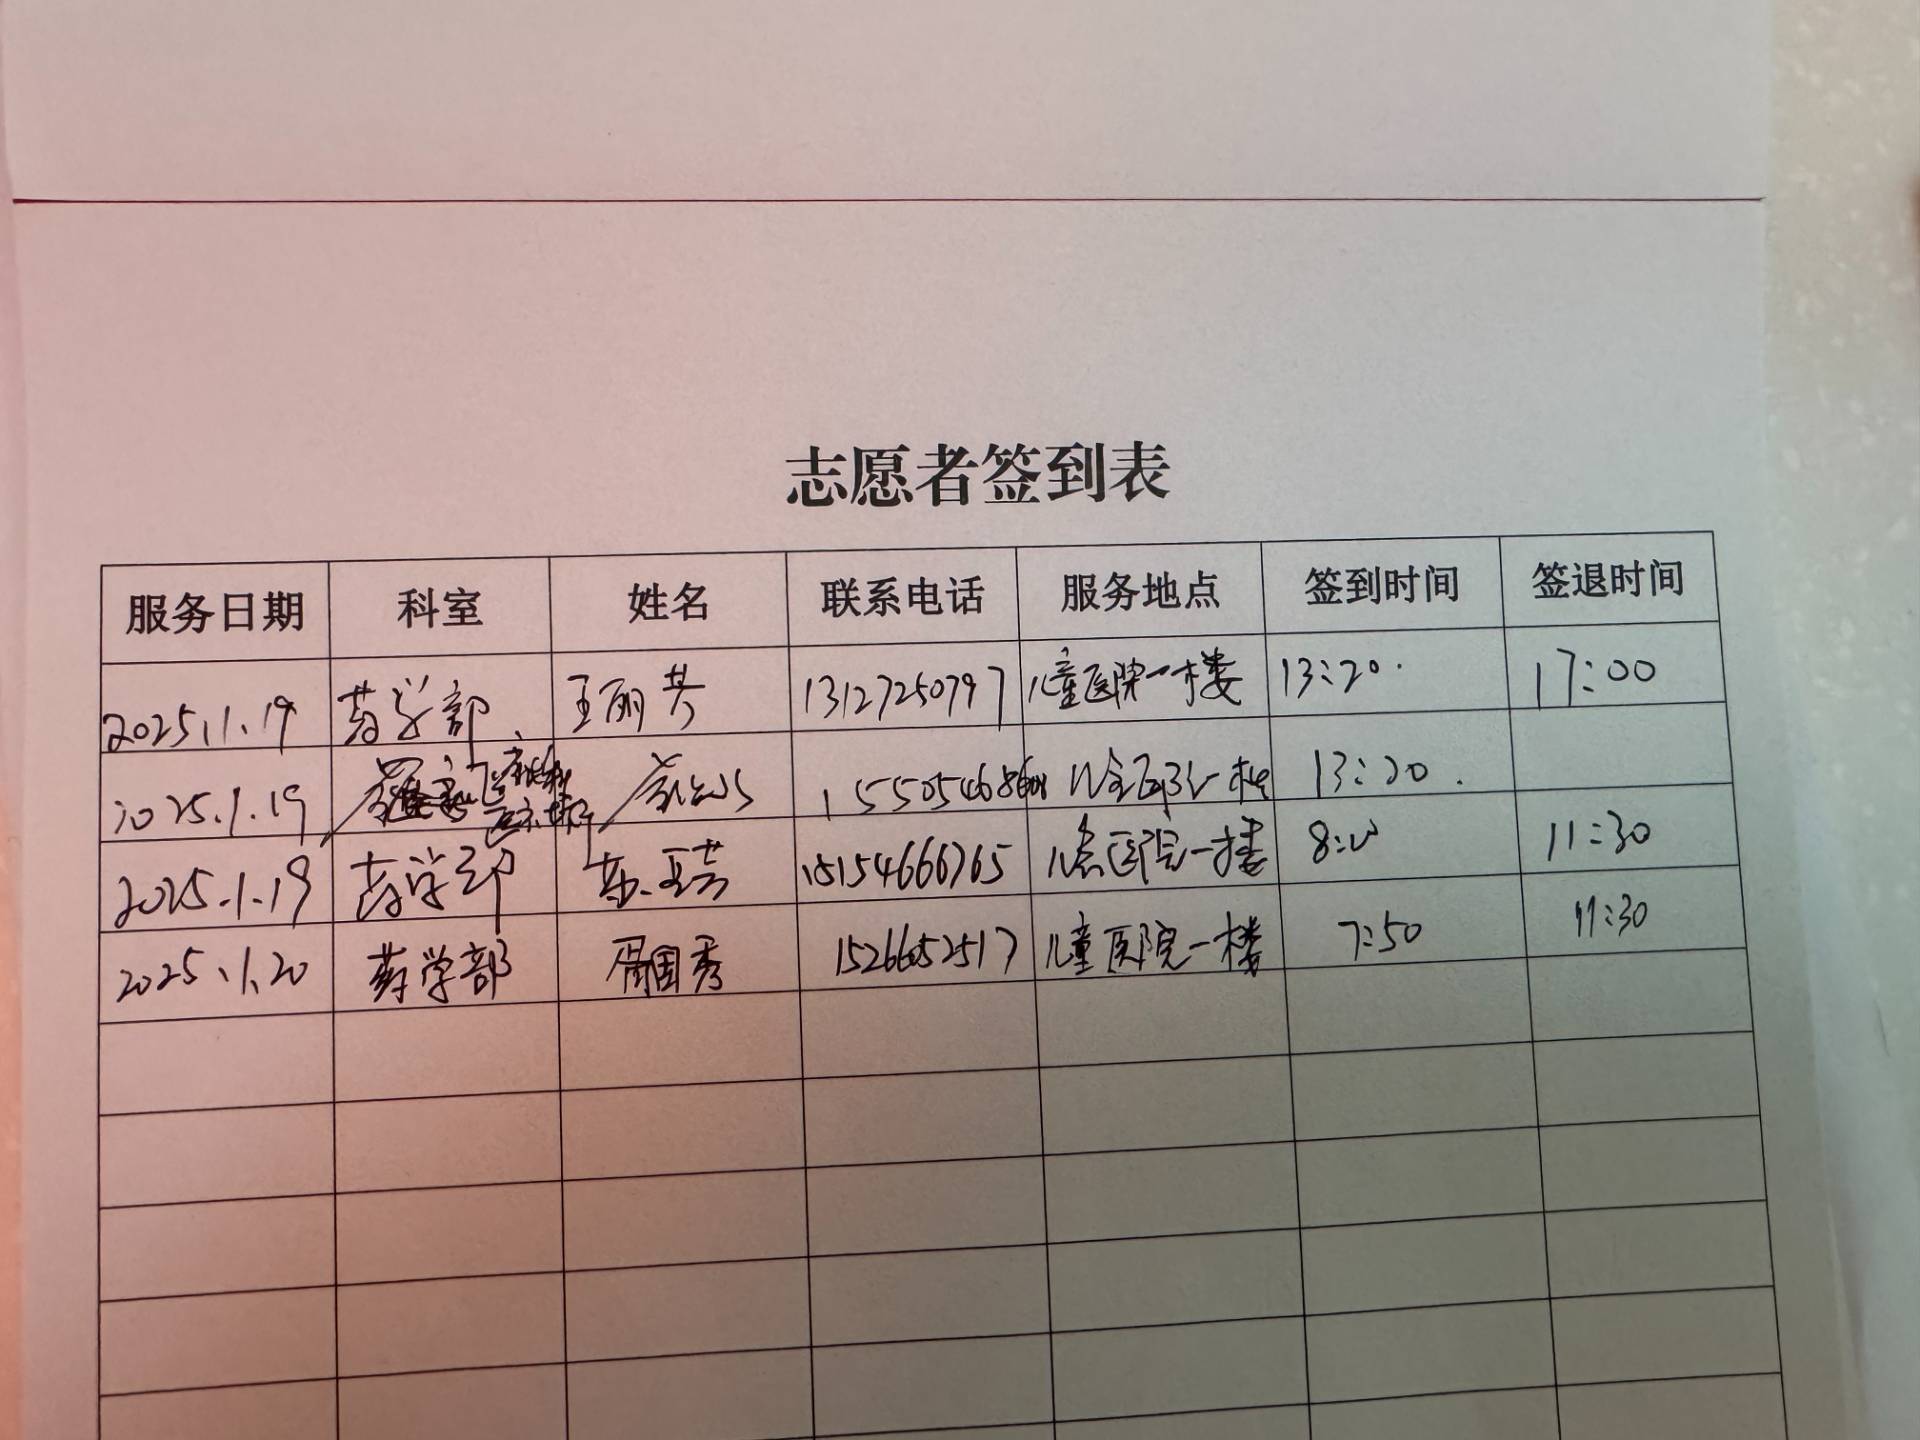 志愿者签到表
服务日期 科室 姓名 联系电话 服务地点 签到时间 签退时间
2025.1.19 药学部 王丽 13127250797 儿童医院一楼 13:20. 17:00
2025.1.19 13:20.
2025.1.19 药学部 15154666765 儿童医院一楼 11:30
2025.1.20 药学部 胥国秀 15266052517 儿童医院一楼 7:50 11:30